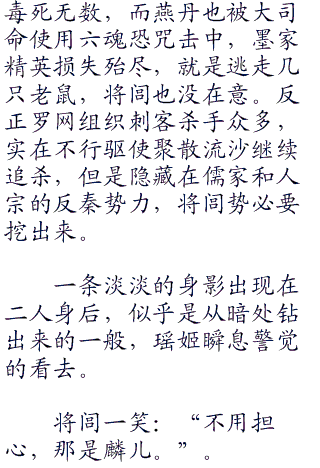 毒死无数，而燕丹也被大司
命使用六魂恐咒击中，墨家
精英损失殆尽，就是逃走几
只老鼠，将闾也没在意。反
正罗网组织刺客杀手众多，
实在不行驱使聚散流沙继续
追杀，但是隐藏在儒家和人
宗的反秦势力，将闾势必要
挖出来。
一条淡淡的身影出现在
二人身后，似乎是从暗处钻
出来的一般，瑶姬瞬息警觉
的看去。
将闾一笑：“不用担
心，那是麟儿。”。